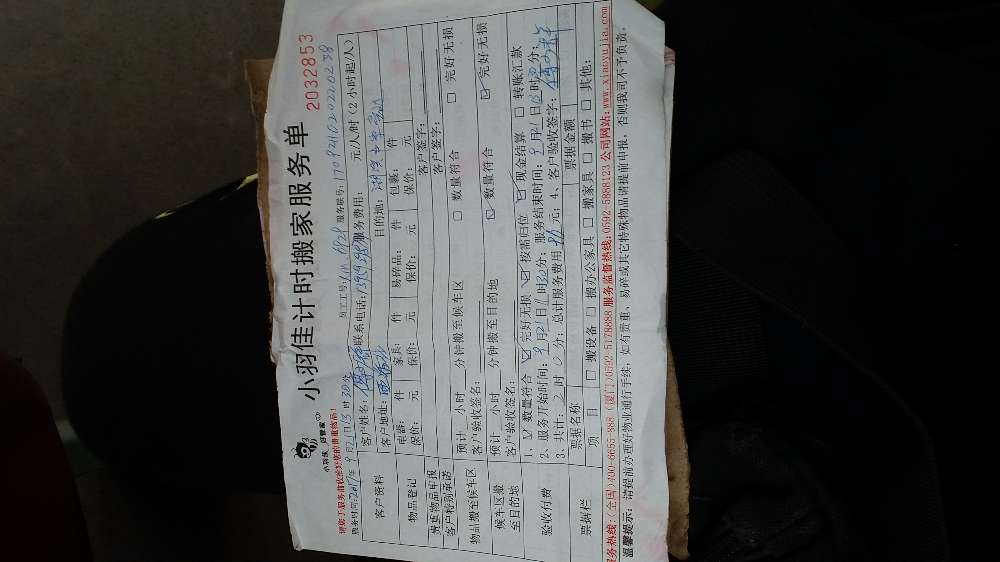 小羽佳计时搬家服务单
2032853
小羽佳 好管家
请您于服务前收拾好您的贵重物品!
服务时间:2017年9月21日13时30分 员工工号: 服务联号:
客户资料
客户姓名: 联系电话: 服务费用: 元/人/时(2小时起/人)
客户地址: 目的地:
物品登记
电器: 件 家具: 件 易碎品: 件 包裹: 件
保价: 元 保价: 元 保价: 元 保价: 元
贵重物品申报 客户签字:
客户特别承诺 客户签字:
物品搬至候车区
预计 小时 分钟搬至候车区 □ 数量符合 □ 完好无损
客户验收签名:
候车区搬至目的地
预计 小时 分钟搬至目的地 ☑ 数量符合 ☑ 完好无损
客户验收签名:
验收付费
1、☑ 数量符合 ☑ 完好无损 ☑ 按需归位 ☑ 现金结算 □ 转账汇款
2、服务开始时间:9月21日11时30分;服务结束时间:9月21日13时30分;
3、共计:2时0分;总计服务费用 元;4、客户验收签字:
票据栏
票据名称 票据金额
项目 □ 搬设备 □ 搬办公家具 □ 搬家具 □ 搬书 □ 其他:
服务热线:(全国)400-6655-888 (厦门)0592-5178888 服务监督热线:0592-5888123 公司网站:www.xiaoyujia.com
温馨提示:请提前办理好物业通行手续,如有贵重、易碎或其它特殊物品请提前申报,否则我司不予负责。